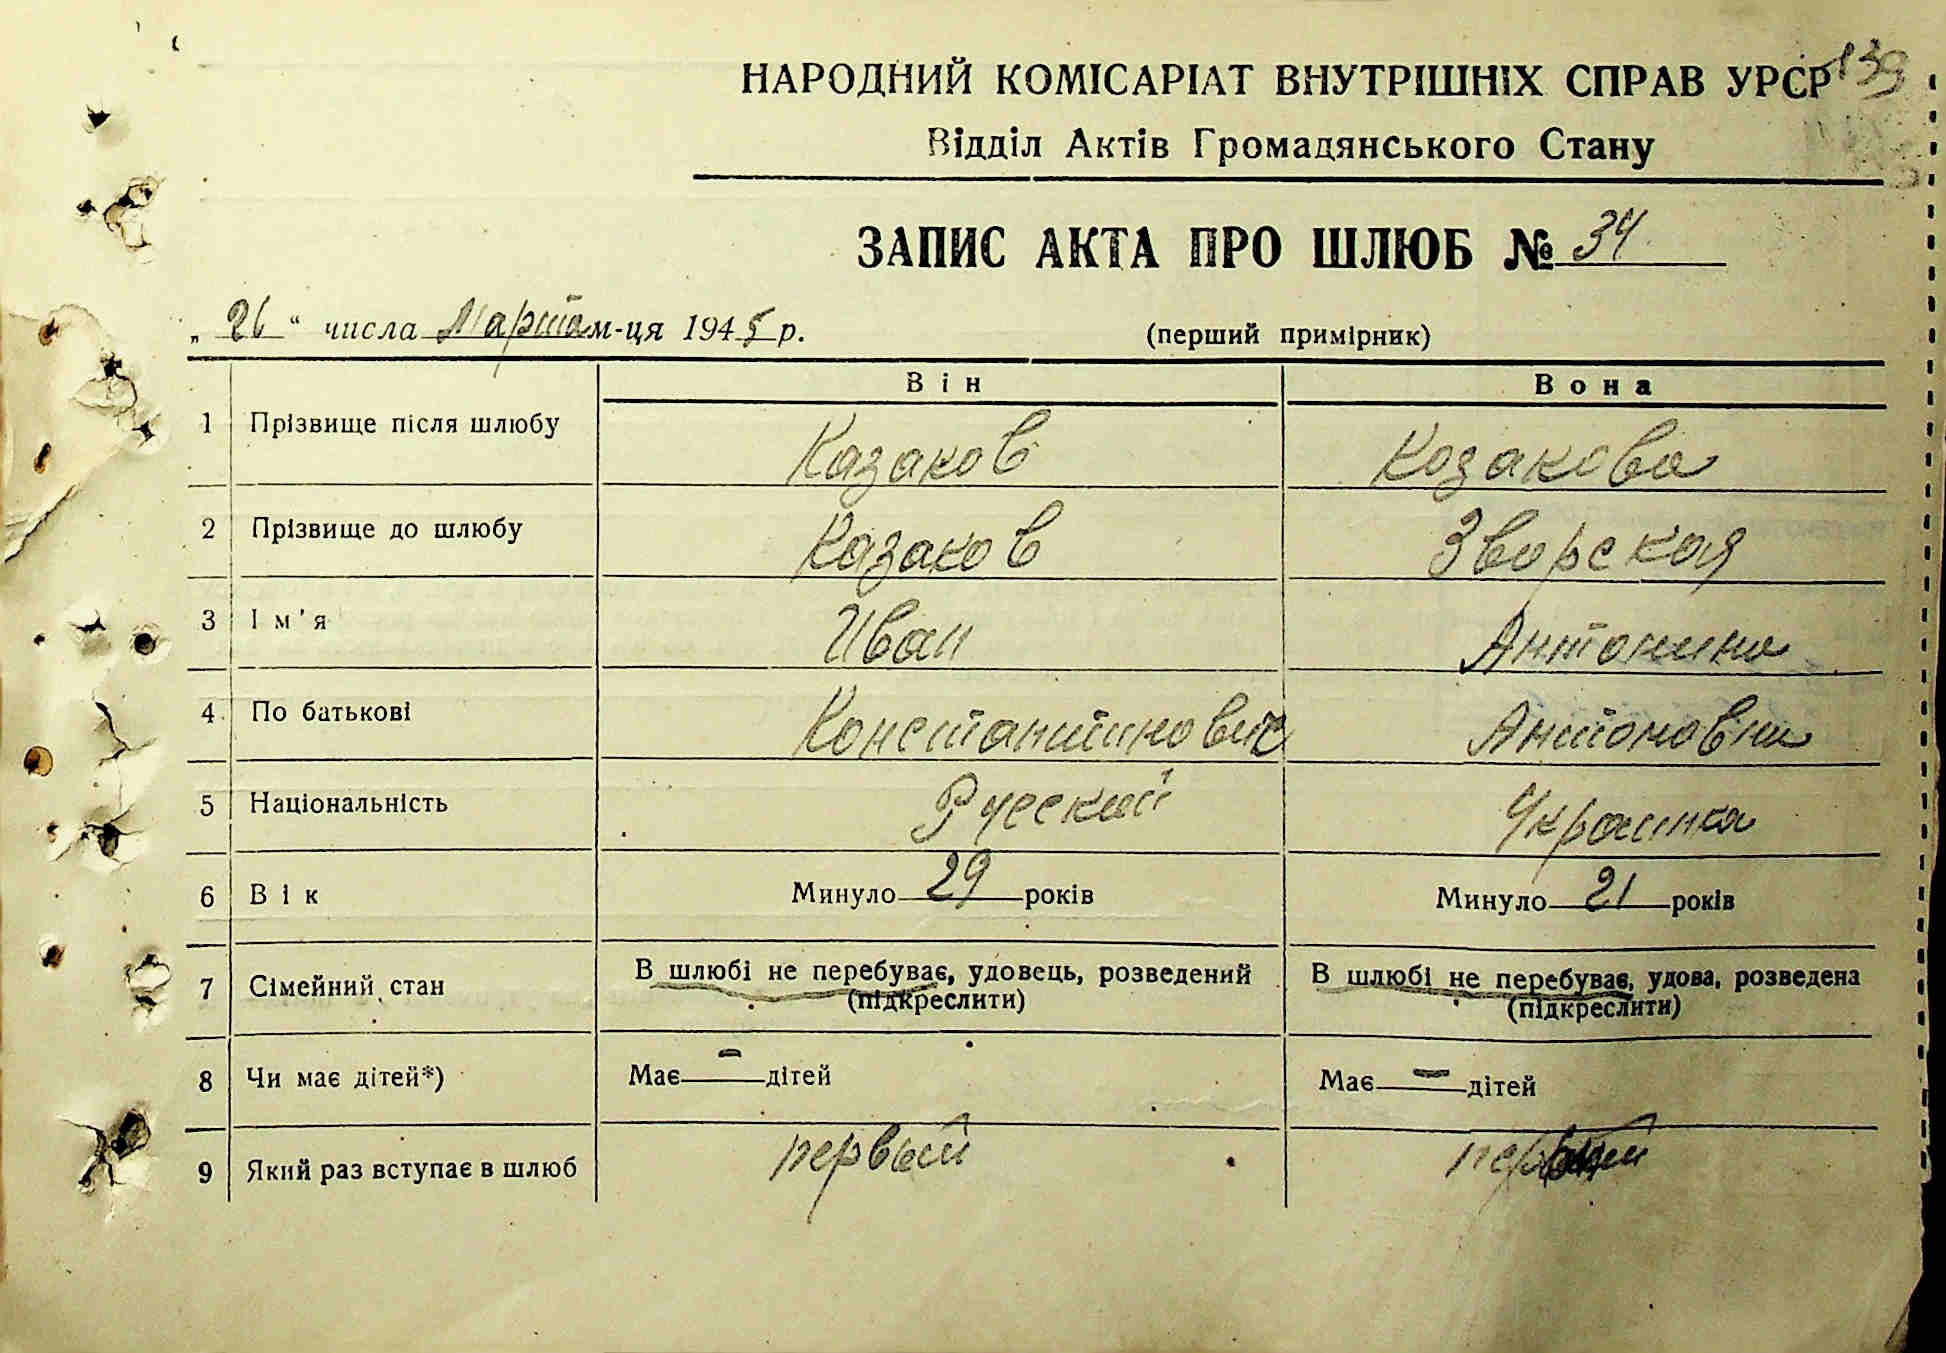 139
НАРОДНИЙ КОМІСАРІАТ ВНУТРІШНІХ СПРАВ УРСР
Відділ Актів Громадянського Стану
ЗАПИС АКТА ПРО ШЛЮБ № 34
„ 26 " числа Марта м-ця 1945 р. (перший примірник)
Він Вона
1 Прізвище після шлюбу Казаков Козакова
2 Прізвище до шлюбу Казаков Зворская
3 Ім'я Иван Антонина
4 По батькові Константинович Антоновна
5 Національність Русский Украинка
6 Вік Минуло 29 років Минуло 21 років
7 Сімейний стан В шлюбі не перебуває, удовець, розведений (підкреслити) В шлюбі не перебуває, удова, розведена (підкреслити)
8 Чи має дітей*) Має — дітей Має — дітей
9 Який раз вступає в шлюб первый первый